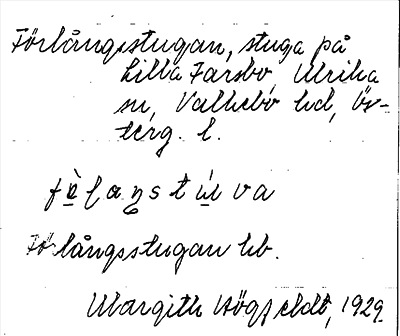 Förlångsstugan, stuga på
Lilla Farsbo, Ulrika
sn, Valkebo hd, Ös-
terg. l.
Förlångsstugan hb.
Margith Högfeldt, 1929